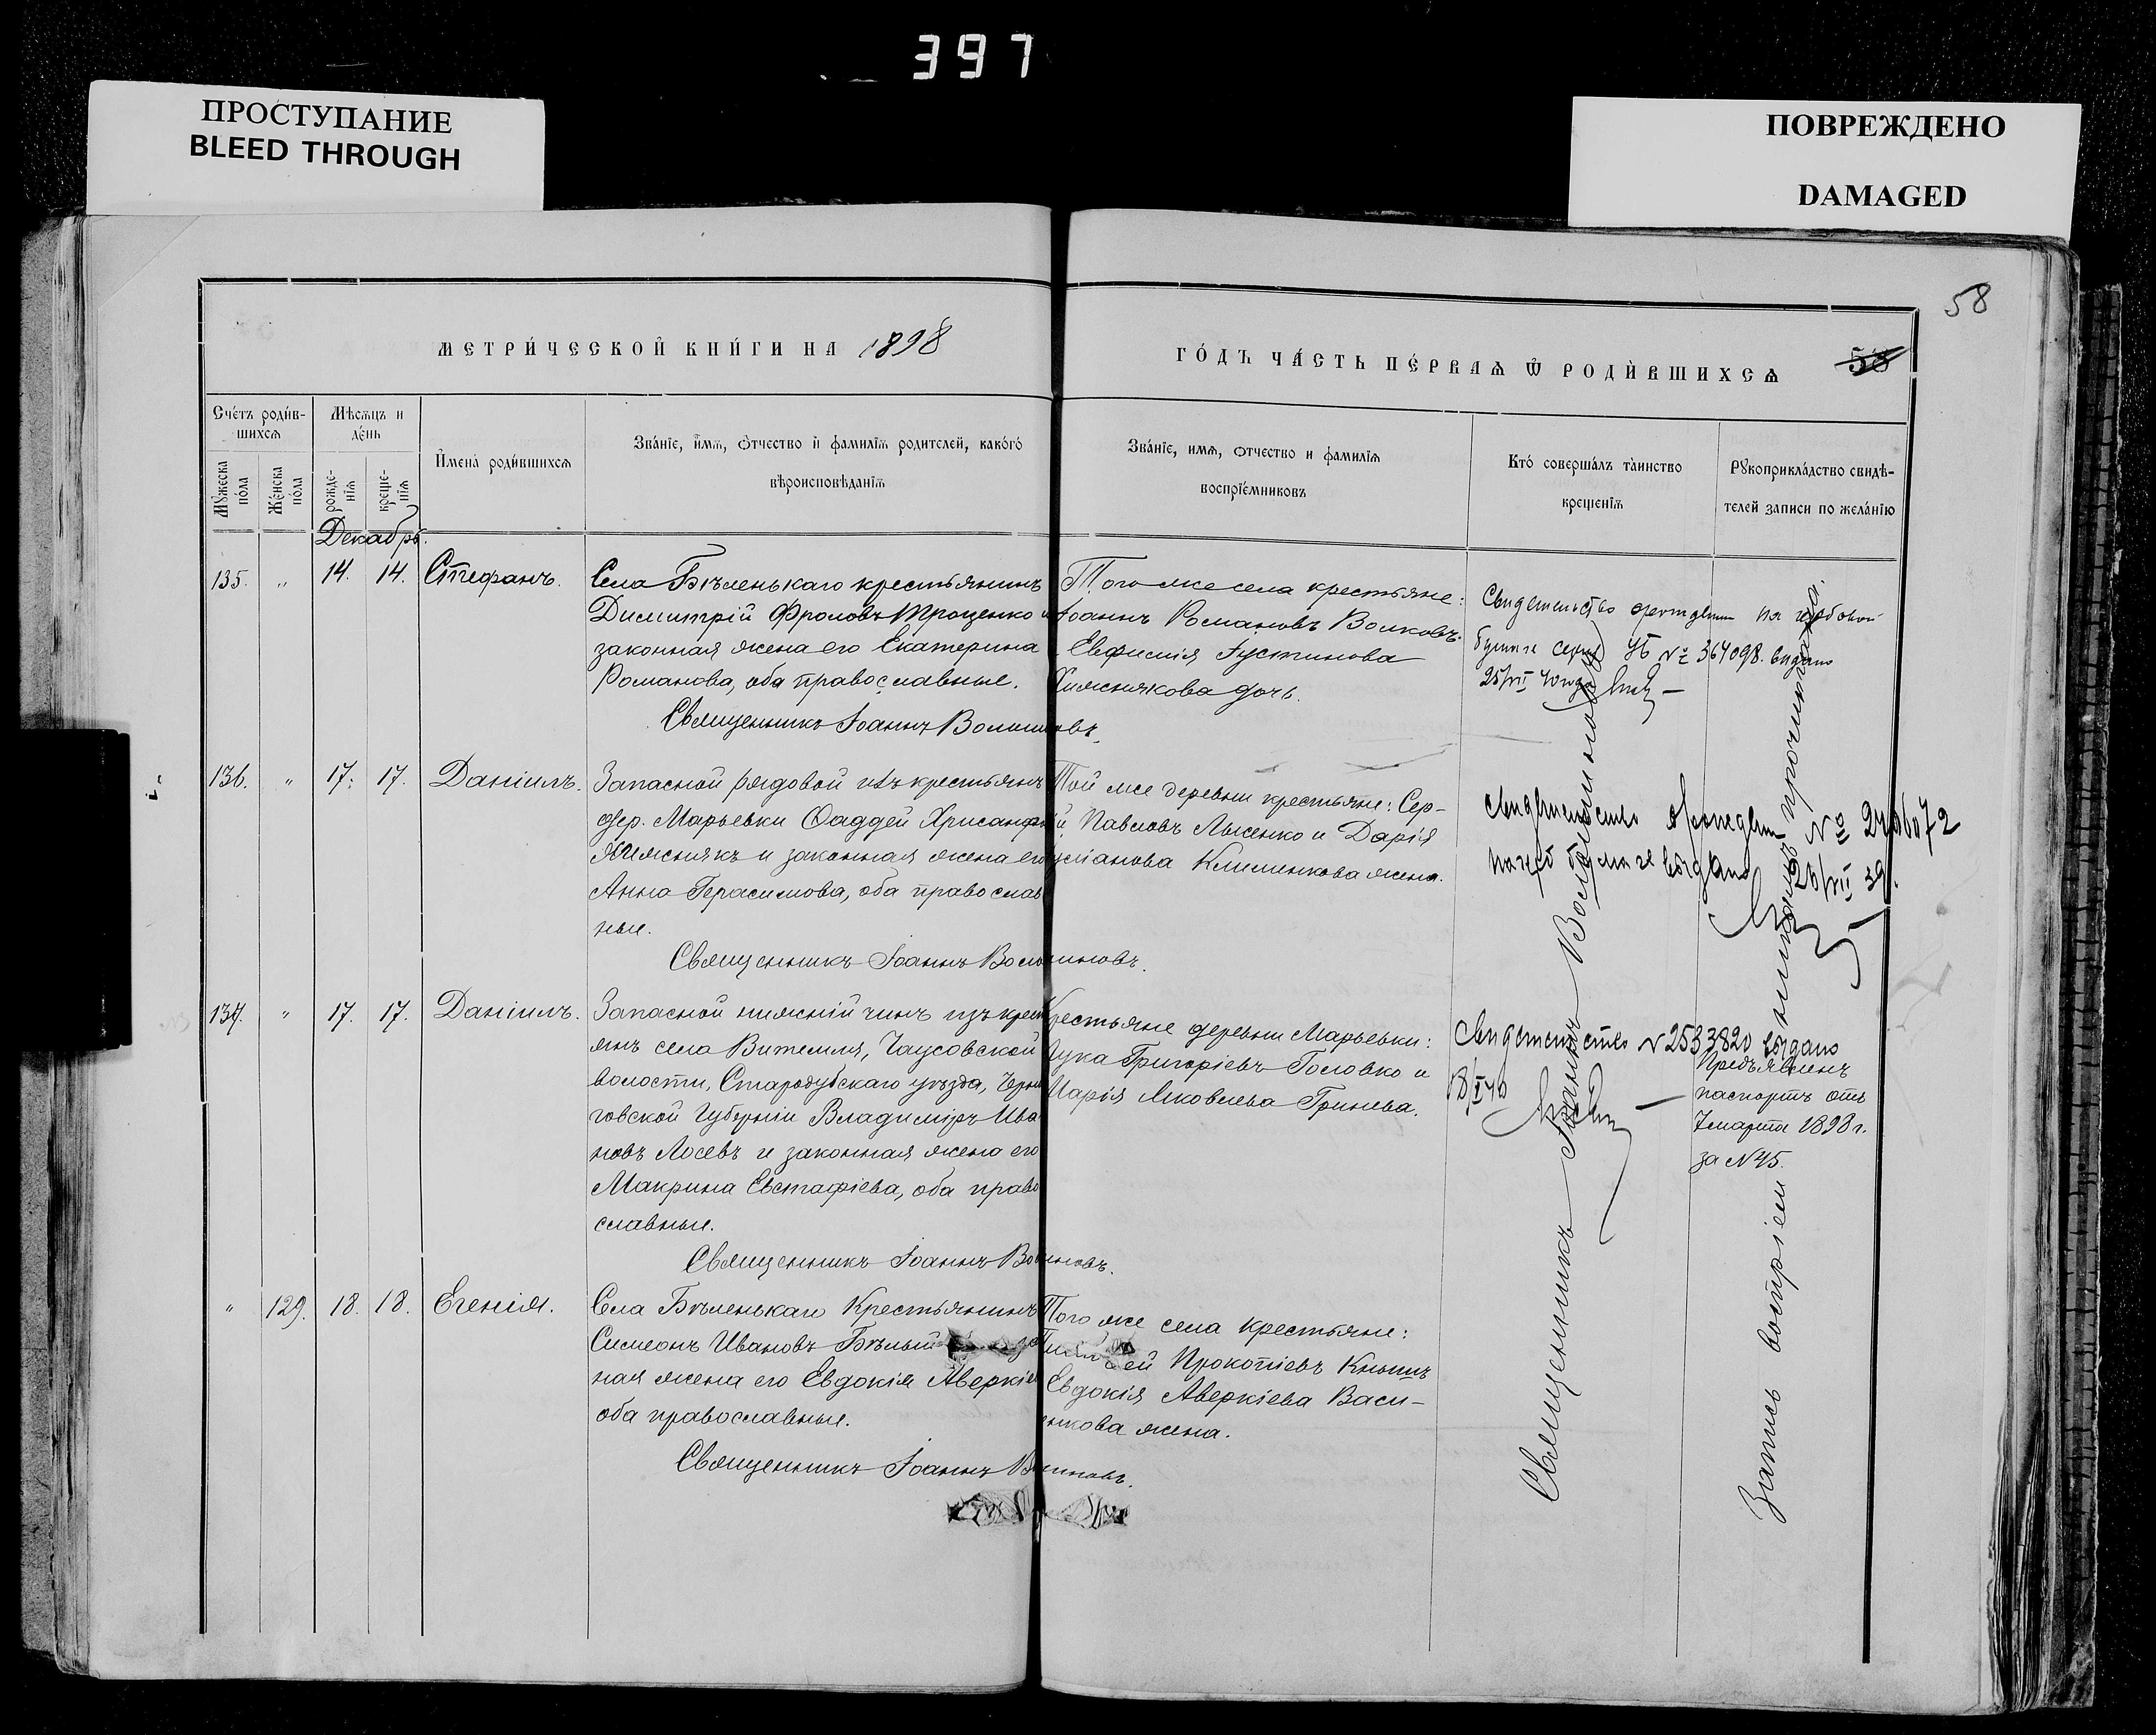 397
ПРОСТУПАНИЕ
BLEED THROUGH
ПОВРЕЖДЕНО
DAMAGED
58
МЕТРИ́ЧЕСКОЙ КНИ́ГИ НА 1898
ГО́ДЪ ЧА́СТЬ ПЕ́РВАѦ Ѿ РОДИ́ВШИХСѦ 58
Сче́тъ роди́в-
шихсѧ
Мѣсѧцъ и
де́нь
Имена̀ роди́вшихсѧ
Зва́нїе, и́мѧ, ѻ́тчество и фамилїѧ родителей, како́гѡ
вѣроисповѣданїѧ
Мꙋжеска
по́ла
Же́нска
по́ла
рожде-
нїѧ
креще-
нїѧ
Зва́нїе, имѧ, ѻтчество и фамилїѧ
воспрїе́мниковъ
Кто̀ соверша́лъ та̀инство
крещенїѧ
Рꙋкоприкла́дство свидѣ-
телей записи по жела́нїю
Декабрь.
135. " 14. 14. Стефанъ.
Села Бѣленькаго крестьянинъ
Димитрій Фроловъ Троценко и
законная жена его Екатерина
Романова, оба православные.
Священникъ Іоаннъ Волошиновъ.
Того же села крестьяне:
Іоаннъ Романовъ Волковъ.
Евфимія Іустинова
Хижнякова дочь.
Свидетельство на гербовой
бумаге серия УБ № 364098. выдано
25/VII 40 года
136. " 17. 17. Даніилъ.
Запасной рядовой изъ крестьянъ
дер. Марьевки Ѳаддей Хрисанфо
и законная жена его
Анна Герасимова, оба православ
ные.
Священникъ Іоаннъ Волошиновъ.
Той же деревни крестьяне: Сер-
й Павловъ Лысенко и Дарія
Клименкова жена.
№ 2406072
бумаге выдано 39.
137. " 17. 17. Даніилъ.
Запасной нижній чинъ изъ крест
янъ села Витемля, Чаусовской
волости, Стародубскаго уѣзда, Черни
говской Губерніи Владиміръ Ива
новъ Лосевъ и законная жена его
Макрина Евстафіева, оба право
славные.
Священникъ Іоаннъ Волошиновъ.
Крестьяне деревни Марьевки:
Лука Григоріевъ Головко и
Марія Яковлева Гринева.
Свидетельство № 2533820 выдано
8/I 40
Предъявленъ
паспортъ отъ
7 марта 1898 г.
за № 45.
" 129. 18. 18. Егенія.
Села Бѣленькаго Крестьянинъ
Симеонъ Ивановъ Бѣлый
ная жена его Евдокія Аверкіе
оба православные.
Священникъ Іоаннъ Волошиновъ.
Того же села крестьяне:
Прокопіевъ Кнышъ
Евдокія Аверкіева Васи-
енкова жена.
Священникъ Іоаннъ Волошиновъ
Запись воспріемникамъ прочитана.